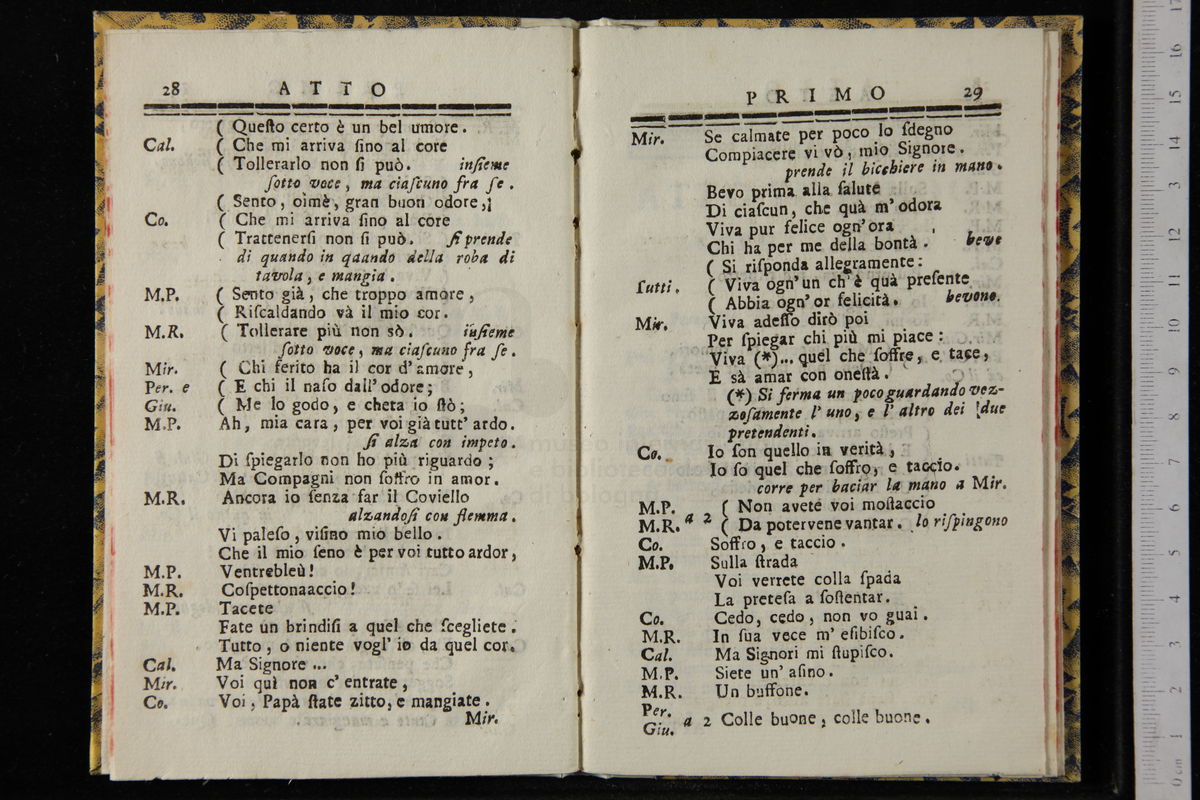 28 ATTO
( Queſto certo è un bel umore.
Cal. ( Che mi arriva ſino al core
( Tollerarlo non ſi può. inſieme
ſotto voce, ma ciaſcuno fra ſe.
( Sento, oimè, gran buon odore,;
Co. ( Che mi arriva ſino al core
( Trattenerſi non ſi può. ſi prende
di quando in qaando della roba di
tavola, e mangia.
M.P. ( Sento già, che troppo amore,
( Riſcaldando và il mio cor.
M.R. ( Tollerare più non sò. inſieme
ſotto voce, ma ciaſcuno fra ſe.
Mir. ( Chi ferito ha il cor d' amore,
Per. e ( E chi il naſo dall' odore;
Giu. ( Me lo godo, e cheta io ſtò;
M.P. Ah, mia cara, per voi già tutt' ardo.
ſi alza con impeto.
Di ſpiegarlo non ho più riguardo;
Ma Compagni non ſoffro in amor.
M.R. Ancora io ſenza far il Coviello
alzandoſi con flemma.
Vi paleſo, viſino mio bello.
Che il mio ſeno è per voi tutto ardor,
M.P. Ventrebleù!
M.R. Coſpettonaaccio!
M.P. Tacete
Fate un brindiſi a quel che ſcegliete.
Tutto, o niente vogl' io da quel cor.
Cal. Ma Signore ...
Mir. Voi quì non c' entrate,
Co. Voi, Papà ſtate zitto, e mangiate.
Mir.
PRIMO 29
Mir. Se calmate per poco lo ſdegno
Compiacere vi vò, mio Signore.
prende il bicchiere in mano.
Bevo prima alla ſalute
Di ciaſcun, che quà m' odora
Viva pur felice ogn' ora
Chi ha per me della bontà. beve
( Si riſponda allegramente:
Tutti. ( Viva ogn' un ch' è quà preſente
( Abbia ogn' or felicità. bevono.
Mir. Viva adeſſo dirò poi
Per ſpiegar chi più mi piace:
Viva (*)... quel che ſoffre, e tace,
E sà amar con oneſtà.
(*) Si ferma un poco guardando vez-
zoſamente l' uno, e l' altro dei due
pretendenti.
Co. Io ſon quello in verità,
Io ſo quel che ſoffro, e taccio.
corre per baciar la mano a Mir.
M.P. ( Non avete voi moſtaccio
M.R. a 2 ( Da potervene vantar. lo riſpingono
Co. Soffro, e taccio.
M.P. Sulla ſtrada
Voi verrete colla ſpada
La preteſa a ſoſtentar.
Co. Cedo, cedo, non vo guai.
M.R. In ſua vece m' eſibiſco.
Cal. Ma Signori mi ſtupiſco.
M.P. Siete un' aſino.
M.R. Un buffone.
Per.
Giu. a 2 Colle buone, colle buone.